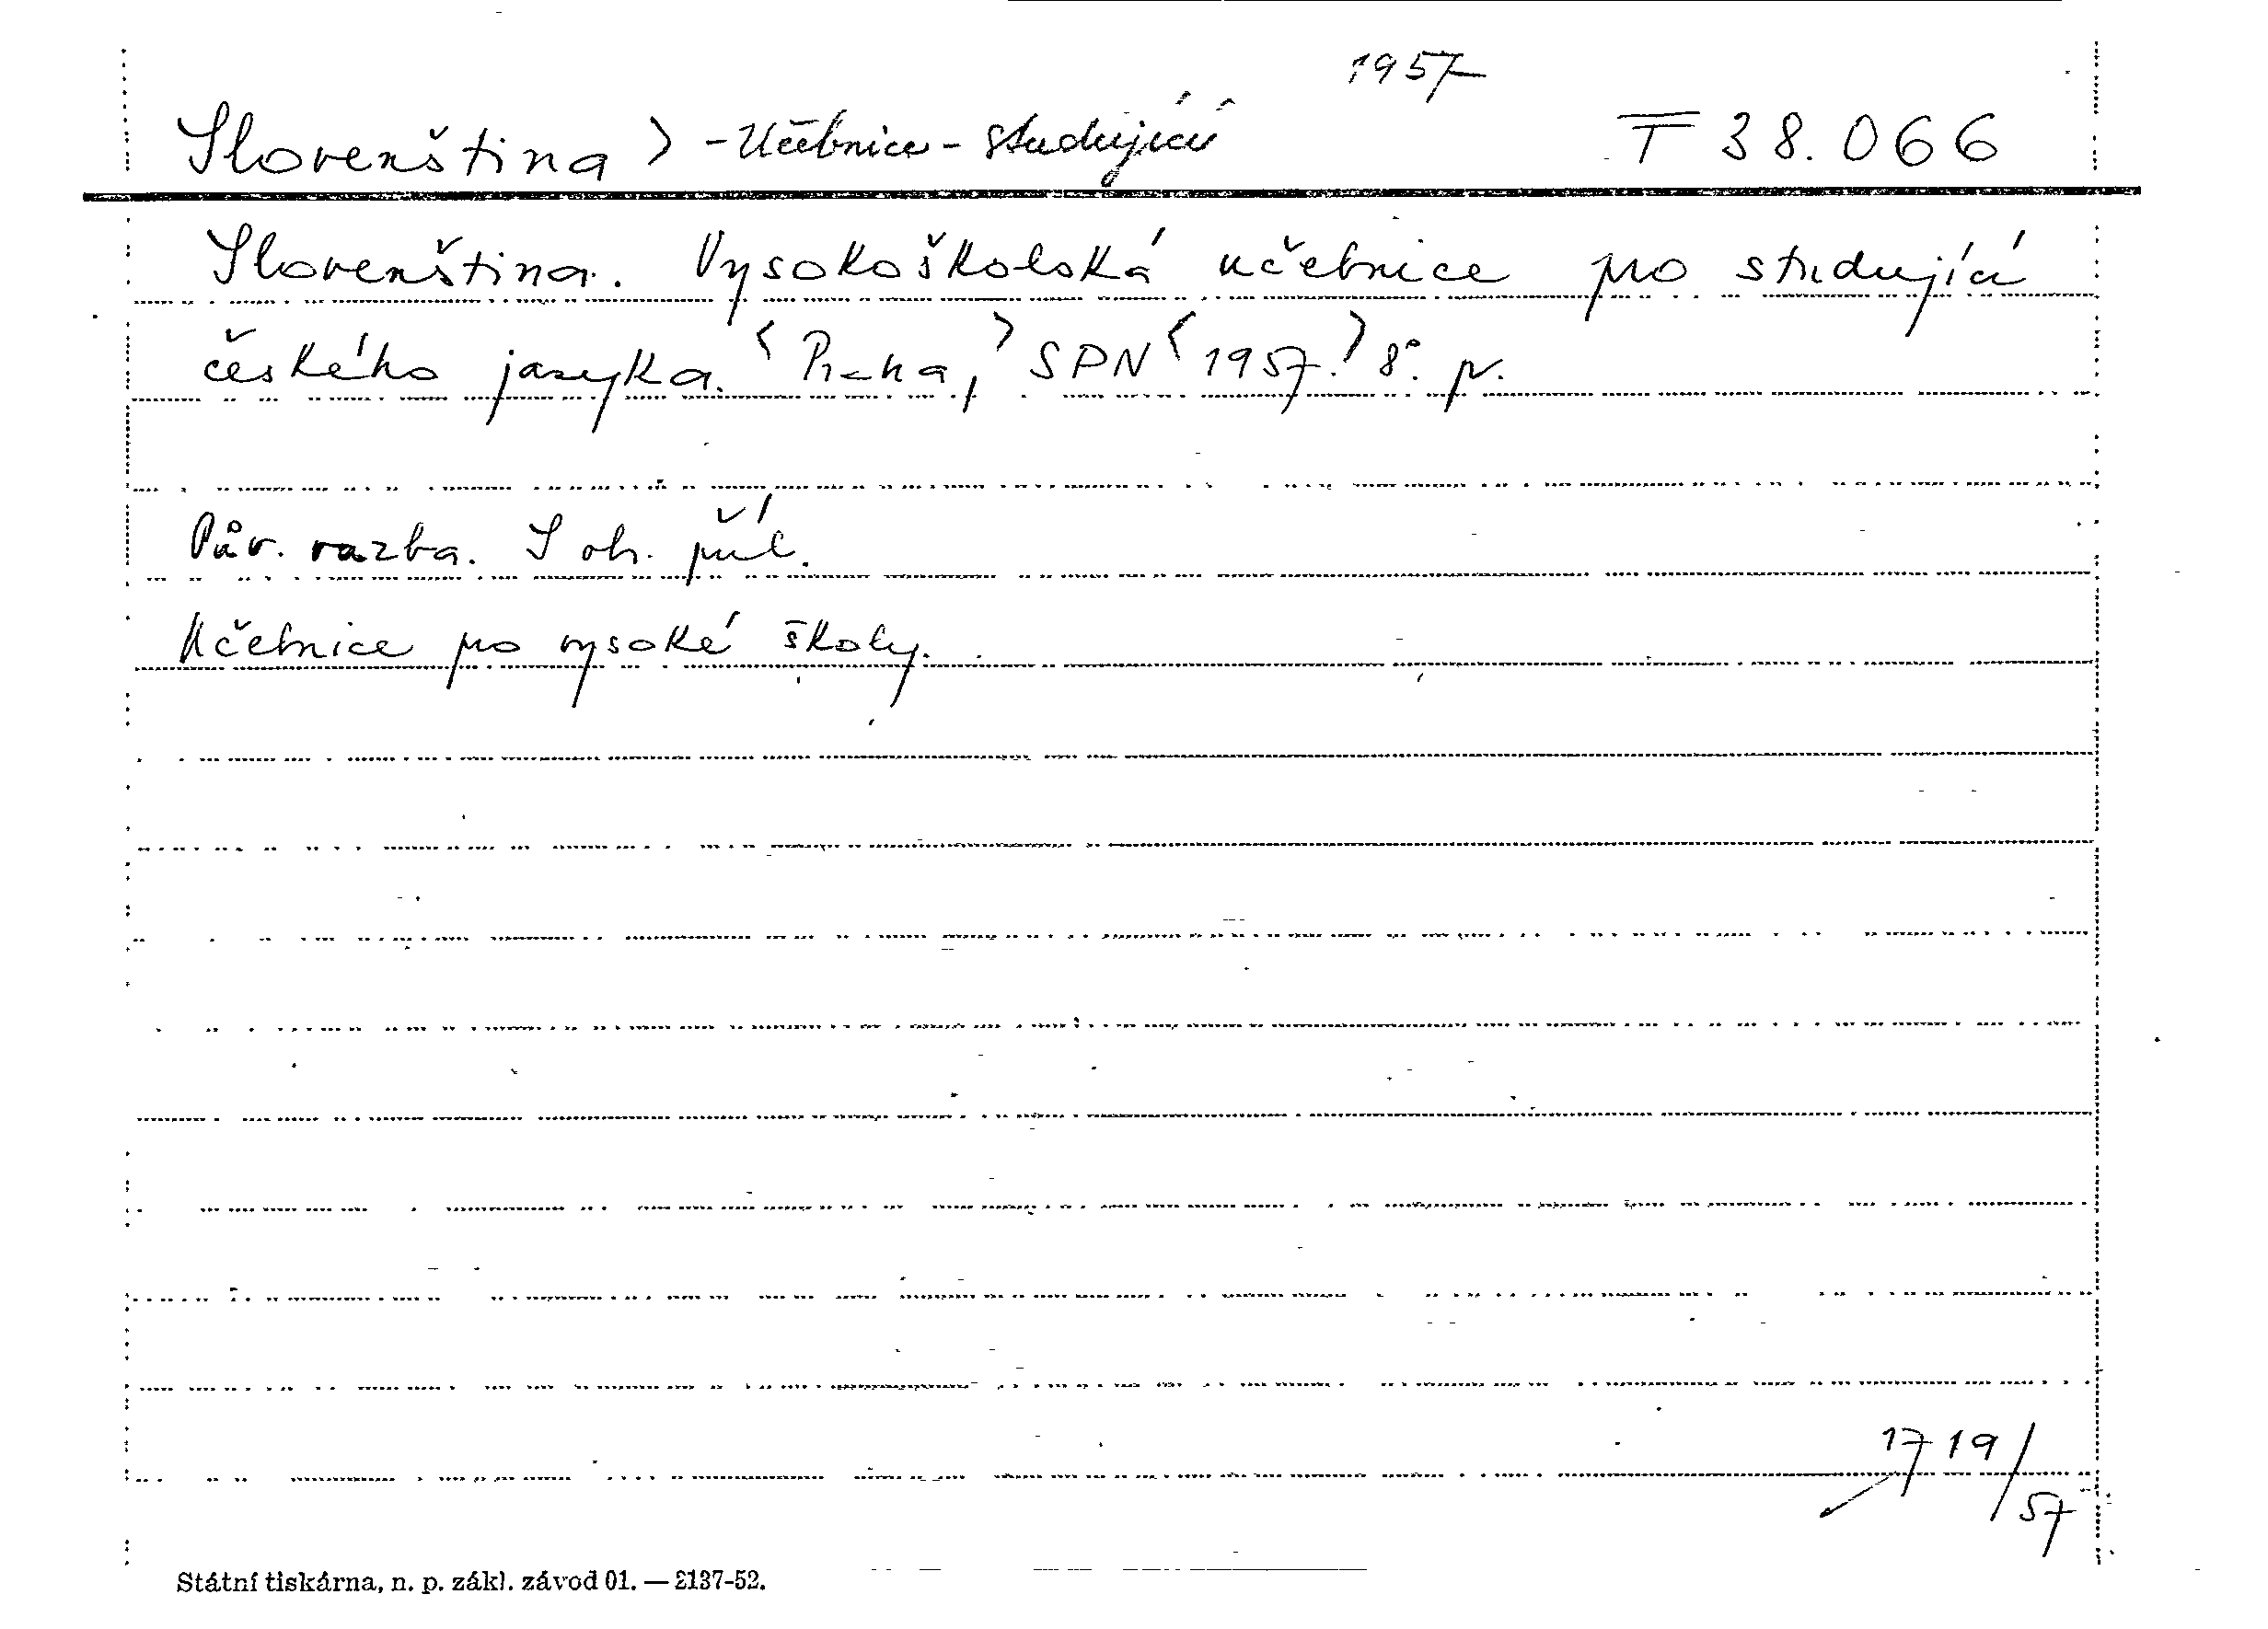 1957
Slovenština > - Učebnice - studující T 38.066
Slovenština. Vysokoškolská učebnice pro studující
českého jazyka. <Praha,> SPN <1957.> 8°. p.
Pův. vazba. S ob. příl.
Učebnice pro vysoké školy.
1719/57
Státní tiskárna, n. p. zákl. závod 01. — 2137-52.